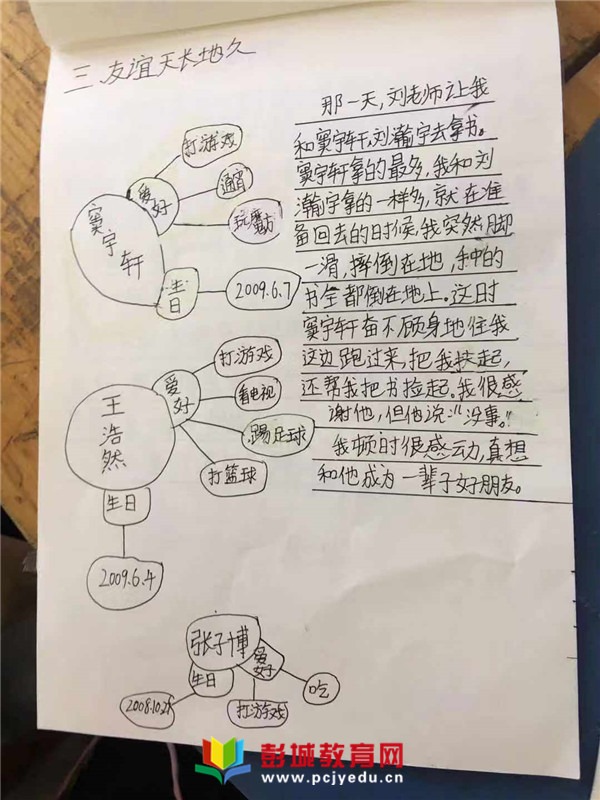 三、友谊天长地久
打游戏
爱好
通宵
玩魔方
窦宇轩
生日
2009.6.7
打游戏
爱好
看电视
踢足球
打篮球
王浩然
生日
2009.6.4
张子博
爱好
生日
吃
打游戏
2008.10.28
那一天,刘老师让我
和窦宇轩,刘瀚宇去拿书。
窦宇轩拿的最多,我和刘
瀚宇拿的一样多,就在准
备回去的时候,我突然脚
一滑,摔倒在地,手中的
书全都倒在地上。这时
窦宇轩奋不顾身地往我
这边跑过来,把我扶起,
还帮我把书捡起。我很感
谢他,但他说:“没事。”
我顿时很感动,真想
和他成为一辈子好朋友。
彭城教育网
www.pcjyedu.cn